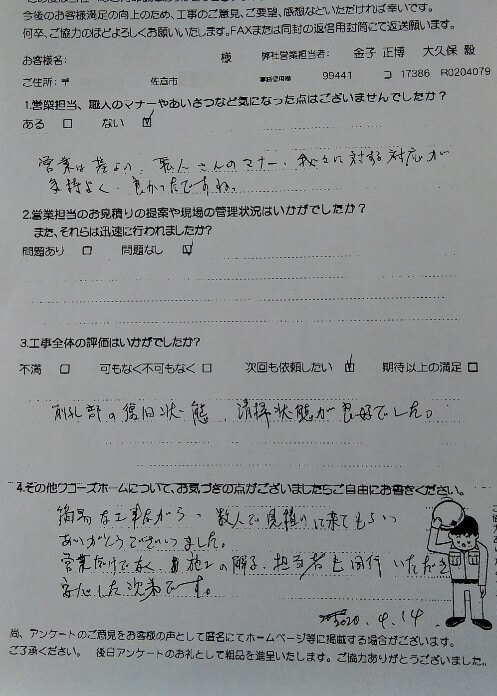 今後のお客様満足の向上のため、工事のご意見、ご要望、感想などいただければ幸いです。
何卒、ご協力のほどよろしくお願いいたします。FAXまたは同封の返信用封筒にて返送願います。
お客様名: 様 弊社営業担当者: 金子 正博 大久保 毅
ご住所: 〒 佐倉市 事務処理用 99441 コ 17386 R0204079
1.営業担当、職人のマナーやあいさつなど気になった点はございませんでしたか?
ある □ ない ☑
営業は 職人さんのマナー、 に対する対応が
気持よく、良かったですね。
2.営業担当のお見積りの提案や現場の管理状況はいかがでしたか?
また、それらは迅速に行われましたか?
問題あり □ 問題なし ☑
3.工事全体の評価はいかがでしたか?
不満 □ 可もなく不可もなく □ 次回も依頼したい ☑ 期待以上の満足 □
削孔部の復旧状態、清掃状態が良好でした。
4.その他ワコーズホームについて、お気づきの点がございましたらご自由にお書きください。
な工事ながら、数人で見積りに来てもらい
ありがとうございました。
営業だけでなく、 施工の 担当者も同行いただき
安心した次第です。
2020.4.14
尚、アンケートのご意見をお客様の声として匿名にてホームページ等に掲載する場合がございます。
ご了承ください。 後日アンケートのお礼として粗品を進呈いたします。ご協力ありがとうございました。